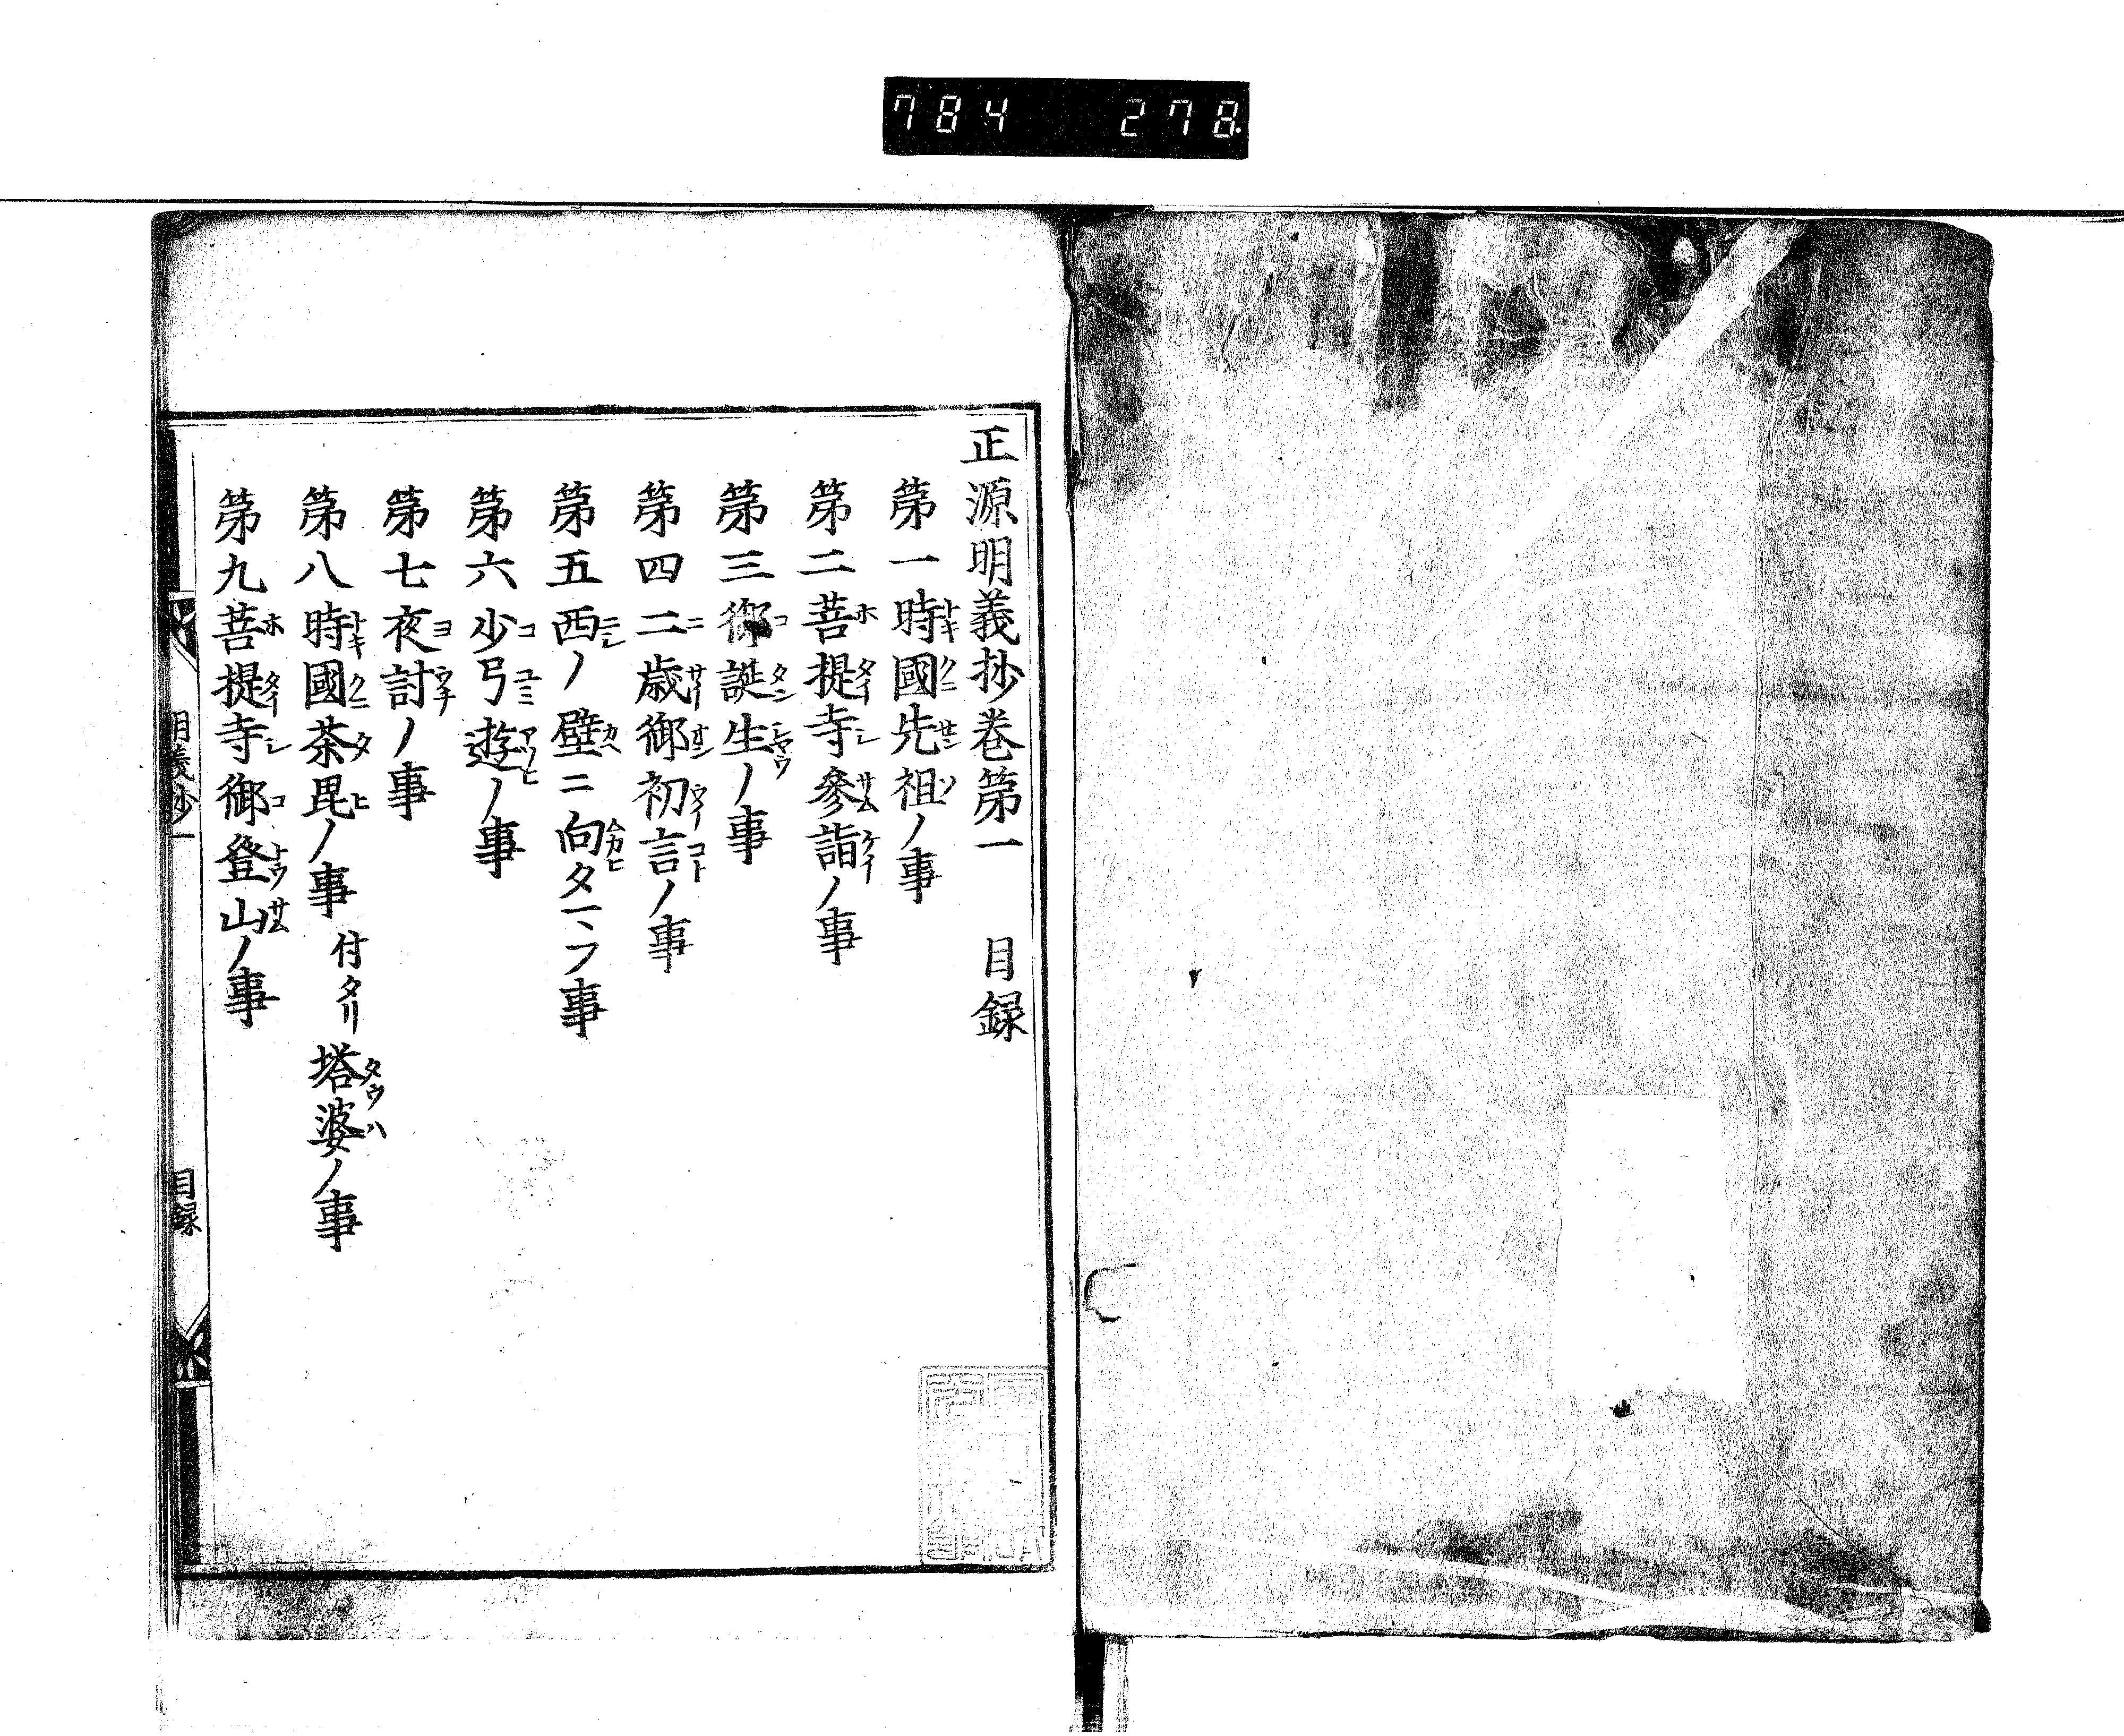 784 278
正源明義抄巻第一 目録
第一時國先祖ノ事
第二菩提寺參詣ノ事
第三御誕生ノ事
第四二歳御初言ノ事
第五西ノ壁ニ向タマフ事
第六少弓遊ノ事
第七夜討ノ事
第八時國茶毘ノ事 付タリ塔婆ノ事
第九菩提寺御登山ノ事
明義抄一 目録